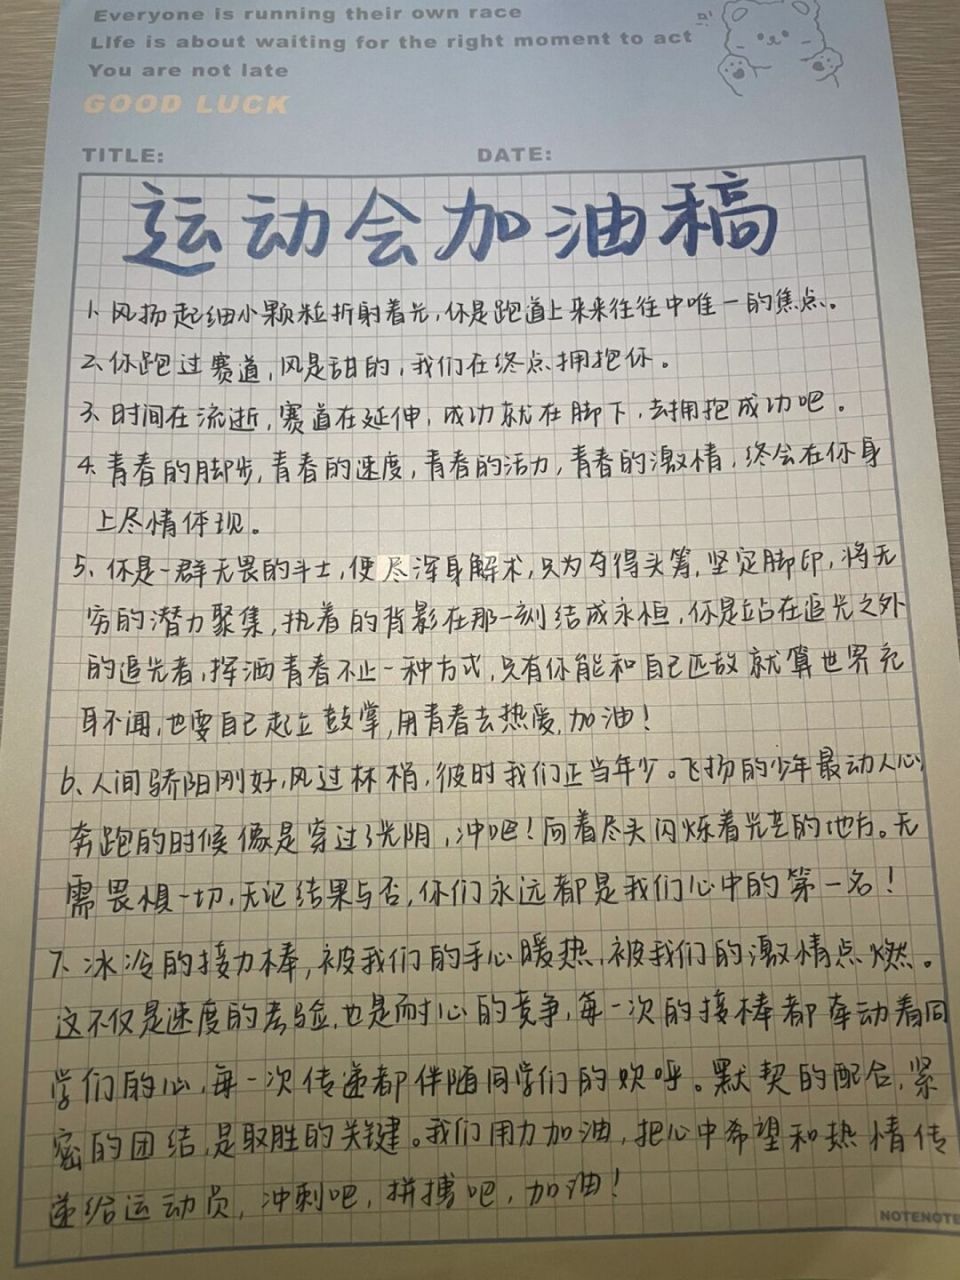 Everyone is running their own race
Life is about waiting for the right moment to act
You are not late
GOOD LUCK
TITLE:
DATE:
运动会加油稿
1、风扬起细小颗粒折射着光,你是跑道上来来往往中唯一的焦点。
2、你跑过赛道,风是甜的,我们在终点拥抱你。
3、时间在流逝,赛道在延伸,成功就在脚下,去拥抱成功吧。
4、青春的脚步,青春的速度,青春的活力,青春的激情,终会在你身
上尽情体现。
5、你是一群无畏的斗士,使尽浑身解术,只为夺得头筹,坚定脚印,将无
穷的潜力聚集,执着的背影在那一刻结成永恒,你是站在追光之外
的追光者,挥洒青春不止一种方式,只有你能和自己匹敌就算世界充
耳不闻,也要自己起立鼓掌,用青春去热爱,加油!
6、人间骄阳刚好,风过林梢,彼时我们正当年少。飞扬的少年最动人心,
奔跑的时候像是穿过了光阴,冲吧!向着尽头闪烁着光芒的地方。无
需畏惧一切,无论结果与否,你们永远都是我们心中的第一名!
7、冰冷的接力棒,被我们的手心暖热,被我们的激情点燃。
这不仅是速度的考验,也是耐心的竞争,每一次的接棒都牵动着同
学们的心,每一次传递都伴随同学们的欢呼。默契的配合,紧
密的团结,是取胜的关键。我们用力加油,把心中希望和热情传
递给运动员,冲刺吧,拼搏吧,加油!
NOTENOTE